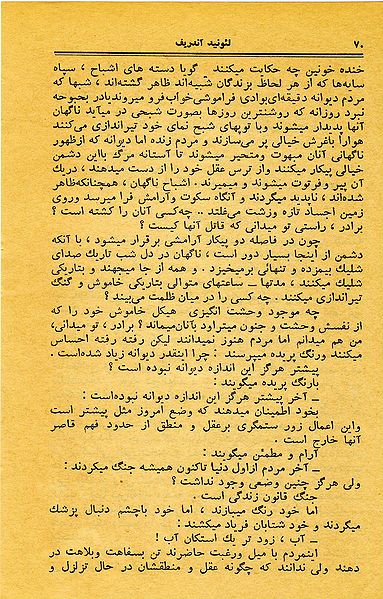 ۷۰ لئونید آندریف
خنده خونین چه حکایت میکنند. گویا دسته های اشباح ، سپاه
سایه‌ها که از هر لحاظ بزندگان شبیه‌اند ظاهر گشته‌اند، شبها که
مردم دیوانه دقیقه‌ای‌بوادی فراموشی‌خواب‌فرو میروندیادر بحبوحه
نبرد روزانه که روشنترین روزها بصورت شبحی در میآید ناگهان
آنها پدیدار میشوند وبا توپهای شبح نمای خود تیراندازی می‌کنند
هوارا باغرش خیالی پر می‌سازند و مردم زنده اما دیوانه که ازظهور
ناگهانی آنان مبهوت ومتحیر میشوند تا آستانه مرگ بااین دشمن
خیالی پیکار میکنند واز ترس عقل خود را از دست میدهند ، دریک
آن پیر وفرتوت میشوند و میمیرند . اشباح ناگهان ، همچنانکه‌ظاهر
شده‌اند، ناپدید میگردند و آنگاه سکوت وآرامش فرا میرسد وروی
زمین اجساد تازه وزشت می‌غلتد .. چه‌کسی آنان را کشته است ؟
برادر ، راستی تو میدانی که قاتل آنها کیست ؟
چون در فاصله دو پیکار آرامشی برقرار میشود ، با آنکه
دشمن از اینجا بسیار دور است ، ناگهان در دل شب تاریک صدای
شلیک بیمزده و تنهائی برمیخیزد . و همه از جا میجهند و بتاریکی
شلیک میکنند ، مدتها ــ ساعتهای متوالی بتاریکی خاموش و گنگ
تیراندازی میکنند . چه کسی را در میان ظلمت می‌بیند ؟
چه موجود وحشت انگیزی هیکل خاموش خود را که
از نفسش وحشت و جنون میتراود بآنان‌میماند؟ برادر ، تو میدانی،
من هم میدانم اما مردم هنوز نمیدانند لیکن رفته رفته احساس
میکنند ورنگ پریده میپرسند : چرا اینقدر دیوانه زیاد شده‌است .
پیشتر هرگز این اندازه دیوانه نبوده است ؟
بارنگ پریده میگویند :
ــ آخر پیشتر هرگز این اندازه دیوانه نبوده‌است :
بخود اطمینان میدهند که وضع امروز مثل پیشتر است
واین اعمال زور ستمگری برعقل و منطق از حدود فهم قاصر
آنها خارج است .
آرام و مطمئن میگویند :
ــ آخر مردم ازاول دنیا تاکنون همیشه جنگ میکردند :
ولی هرگز چنین وضعی وجود نداشت ؟
جنگ قانون زندگی است .
اما خود رنگ میبازند ، اما خود باچشم دنبال پزشک
میگردند و خود شتابان فریاد میکشند :
ــ آب ، زود تر یك استکان آب !
اینمردم با میل ورغبت حاضرند تن بسفاهت وبلاهت در
دهند ولی ندانند که چگونه عقل و منطقشان در حال تزلزل و